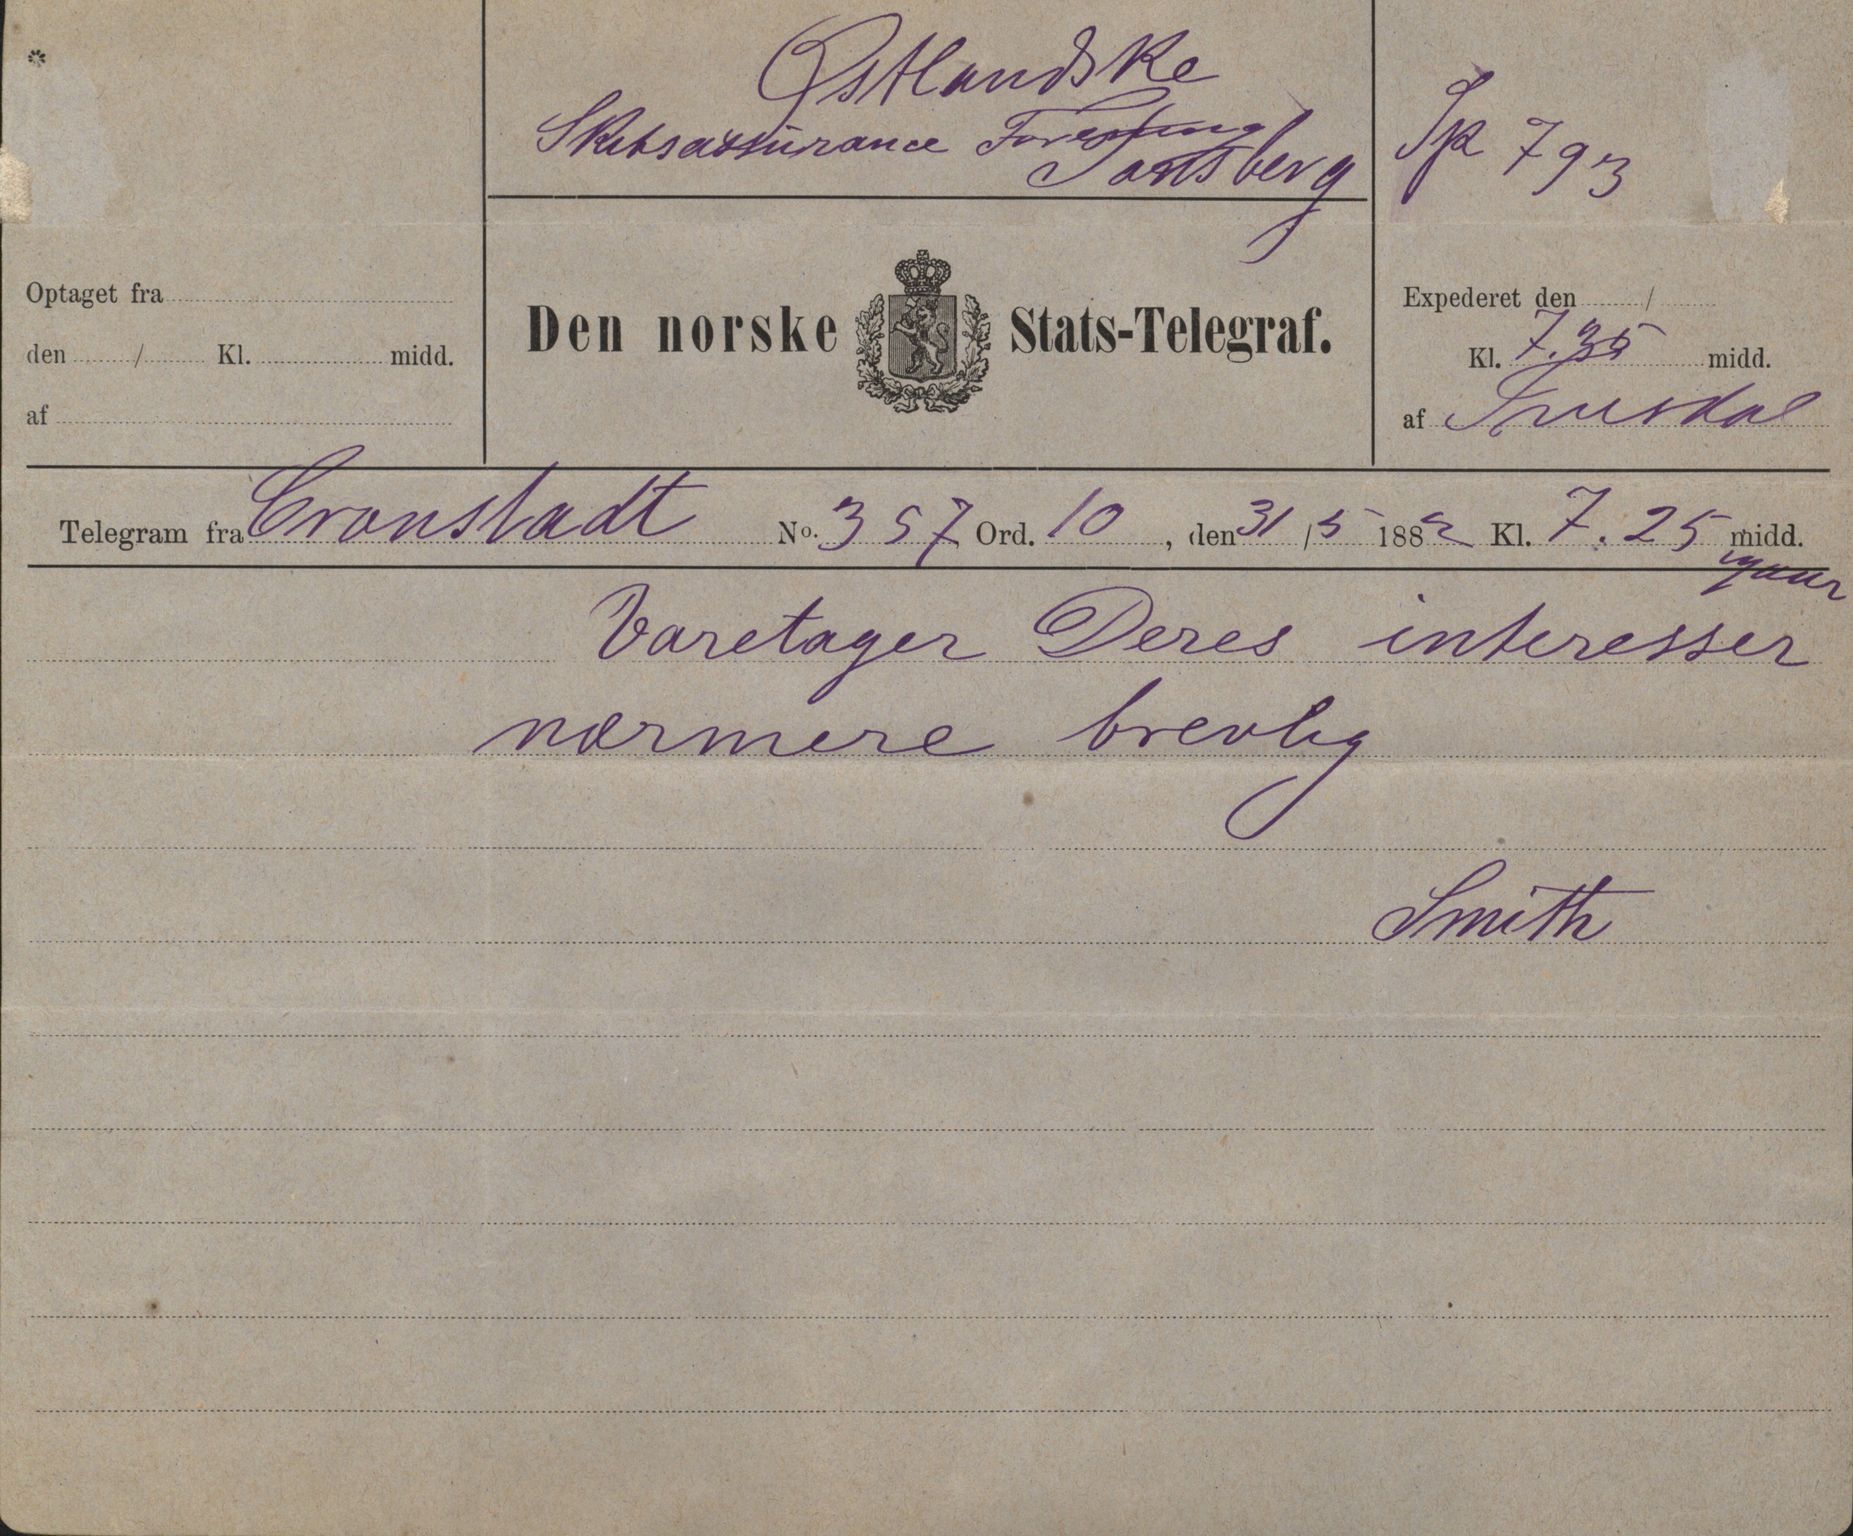 *
Østlandske
Skibsassurance Forening
Tønsberg
Sp 793
Optaget fra
den / Kl. midd.
af
Den norske Stats-Telegraf.
Expederet den /
Kl. 7.35 midd.
af
Telegram fra Cronstadt No. 357 Ord. 10, den 31/5 1882 Kl. 7.25 midd.
Varetager Deres interesser
nærmere brevlig
Smith